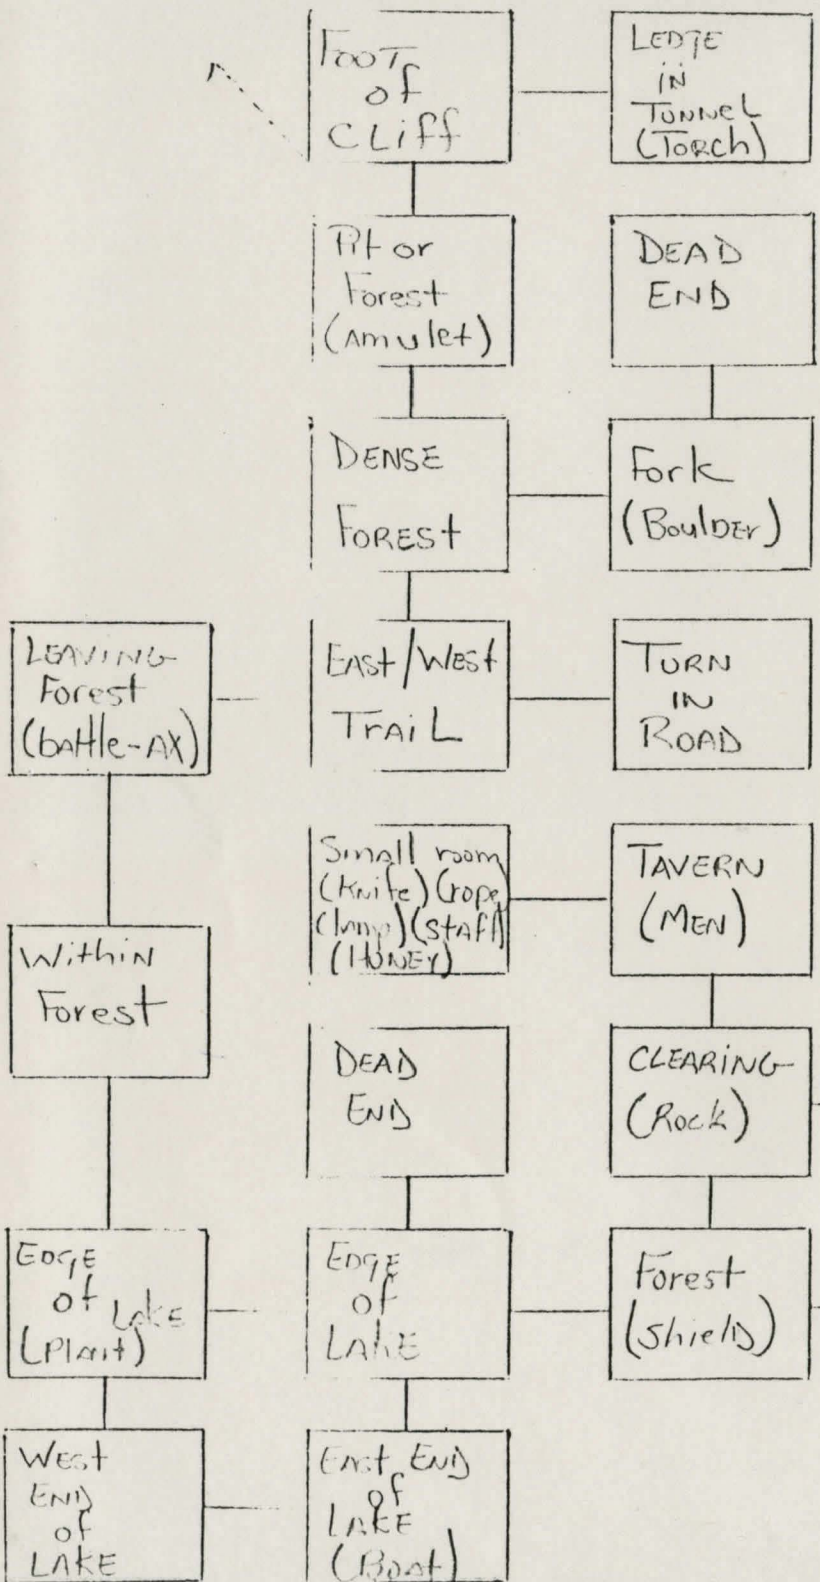 FOOT
of
CLiff
LEDGE
in
TUNNEL
(TORCh)
Pit or
Forest
(Amulet)
DEAD
END
DENSE
FOREST
Fork
(BoulDEr)
LEAVING
Forest
(bAttle-AX)
EAST/WEST
TRAIL
TURN
IN
ROAD
Small room
(Knife) (rope)
(lamp) (STAFF)
(HONEY)
TAVERN
(MEN)
Within
Forest
DEAD
END
CLEARING
(Rock)
EDGE
of LAKE
(PlAnt)
EDGE
OF
LAKE
Forest
(ShielD)
WEST
END
of
LAKE
EAST END
of
LAKE
(BoAt)